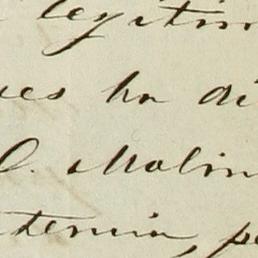 legitim
ues ha di
O. Molin
tenia, pe